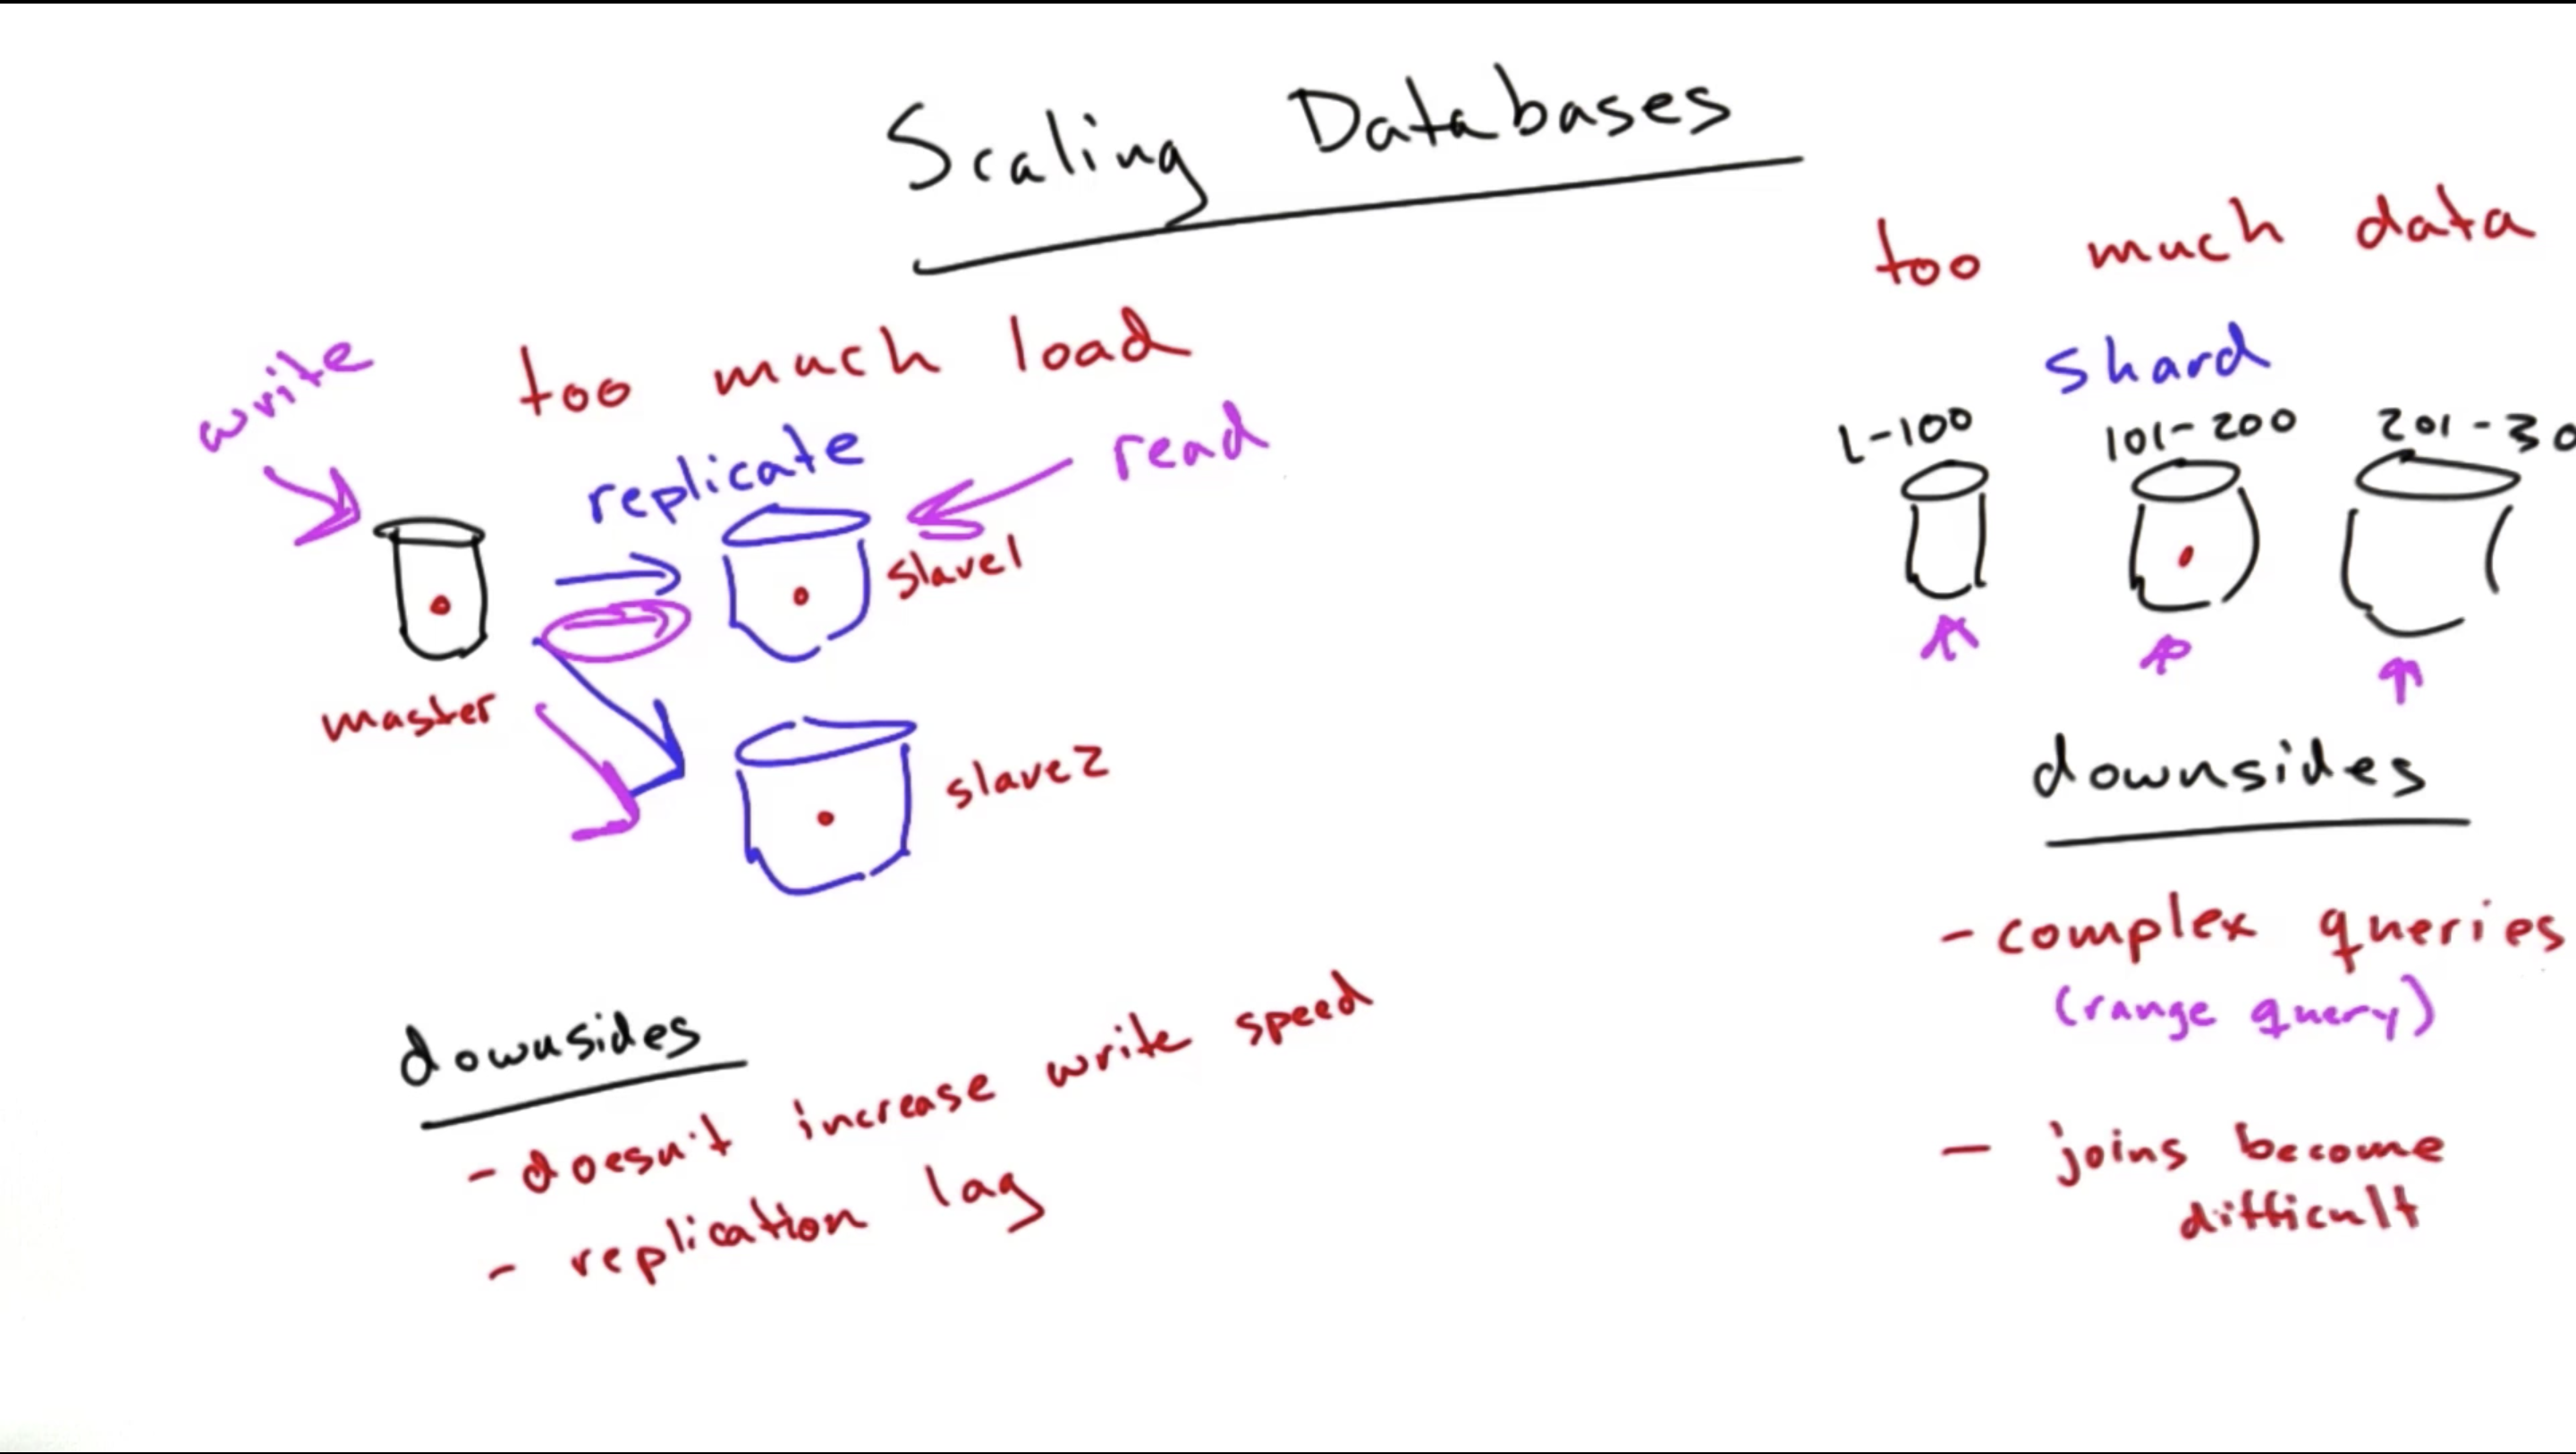 Scaling Databases
too much load
write
replicate
read
slave1
master
slave2
downsides
- doesn't increase write speed
- replication lag
too much data
shard
1-100
101-200
201-30
downsides
- complex queries
(range query)
- joins become
difficult